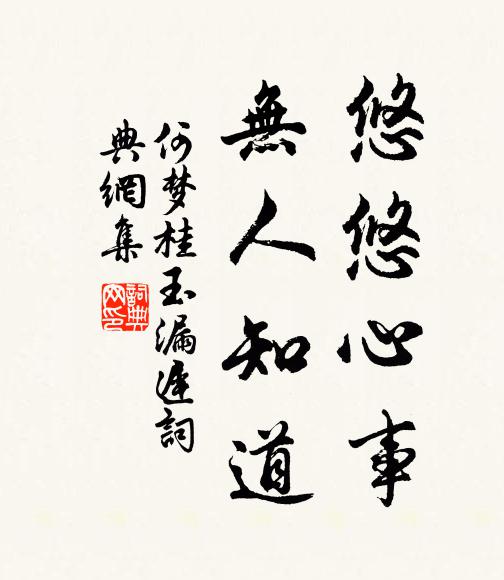 悠悠心事
無人知道
何梦桂玉漏遲詞
典網集
詞典
网印